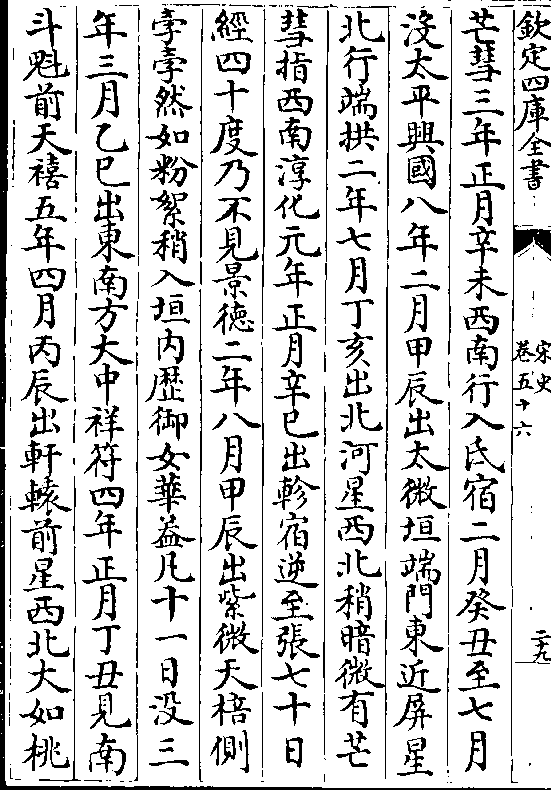 欽定四庫全書
宋史
卷五十六
二九
芒彗三年正月辛未西南行入氐宿二月癸丑至七月
没太平興國八年二月甲辰出太微垣端門東近屏星
北行端拱二年七月丁亥出北河星西北稍暗微有芒
彗指西南淳化元年正月辛巳出軫宿逆至張七十日
經四十度乃不見景德二年八月甲辰出紫微天棓側
孛孛然如粉絮稍入垣内歴御女華葢凡十一日没三
年三月乙巳出東南方大中祥符四年正月丁丑見南
斗魁前天禧五年四月丙辰出軒轅前星西北大如桃